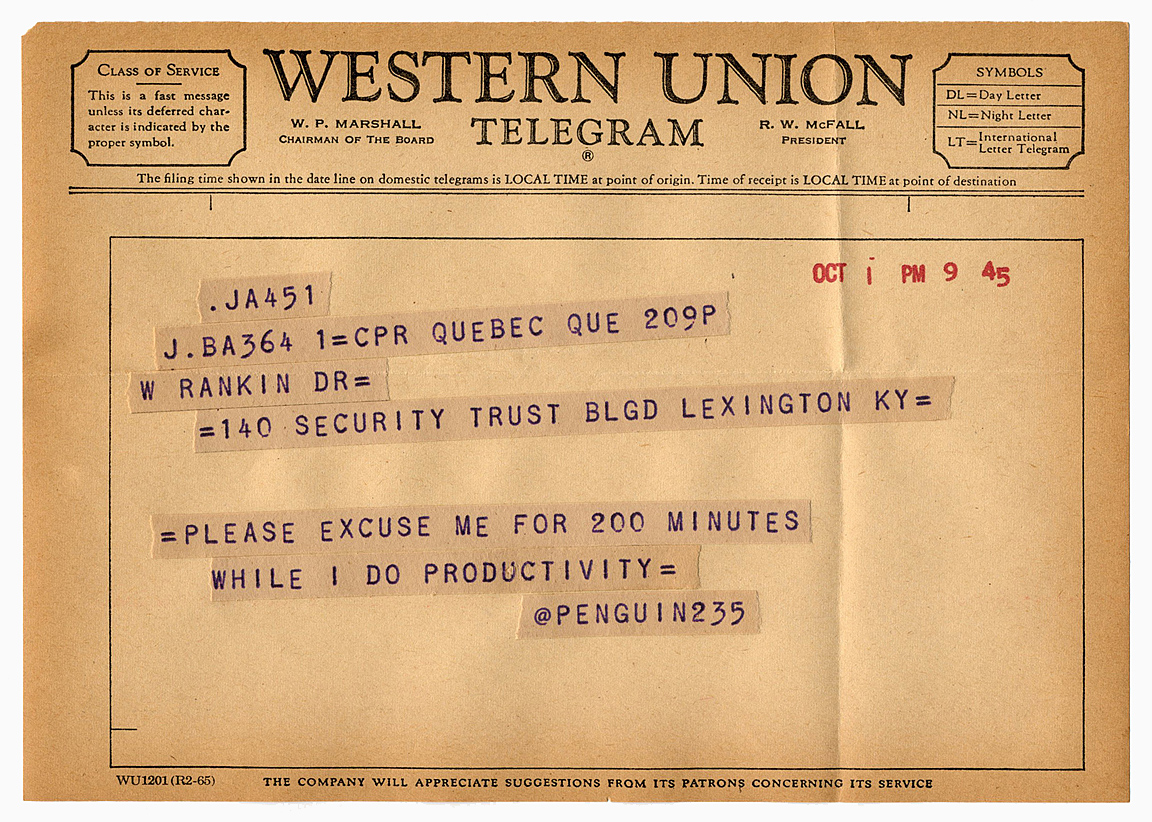 CLASS OF SERVICE
This is a fast message
unless its deferred char-
acter is indicated by the
proper symbol.
WESTERN UNION
TELEGRAM
®
W. P. MARSHALL
CHAIRMAN OF THE BOARD
R. W. McFALL
PRESIDENT
SYMBOLS
DL=Day Letter
NL=Night Letter
LT=International Letter Telegram
The filing time shown in the date line on domestic telegrams is LOCAL TIME at point of origin. Time of receipt is LOCAL TIME at point of destination
OCT 1 PM 9 45
.JA451
J.BA364 1=CPR QUEBEC QUE 209P
W RANKIN DR=
=140 SECURITY TRUST BLGD LEXINGTON KY=
=PLEASE EXCUSE ME FOR 200 MINUTES
WHILE I DO PRODUCTIVITY=
@PENGUIN235
WU1201 (R2-65)
THE COMPANY WILL APPRECIATE SUGGESTIONS FROM ITS PATRONS CONCERNING ITS SERVICE